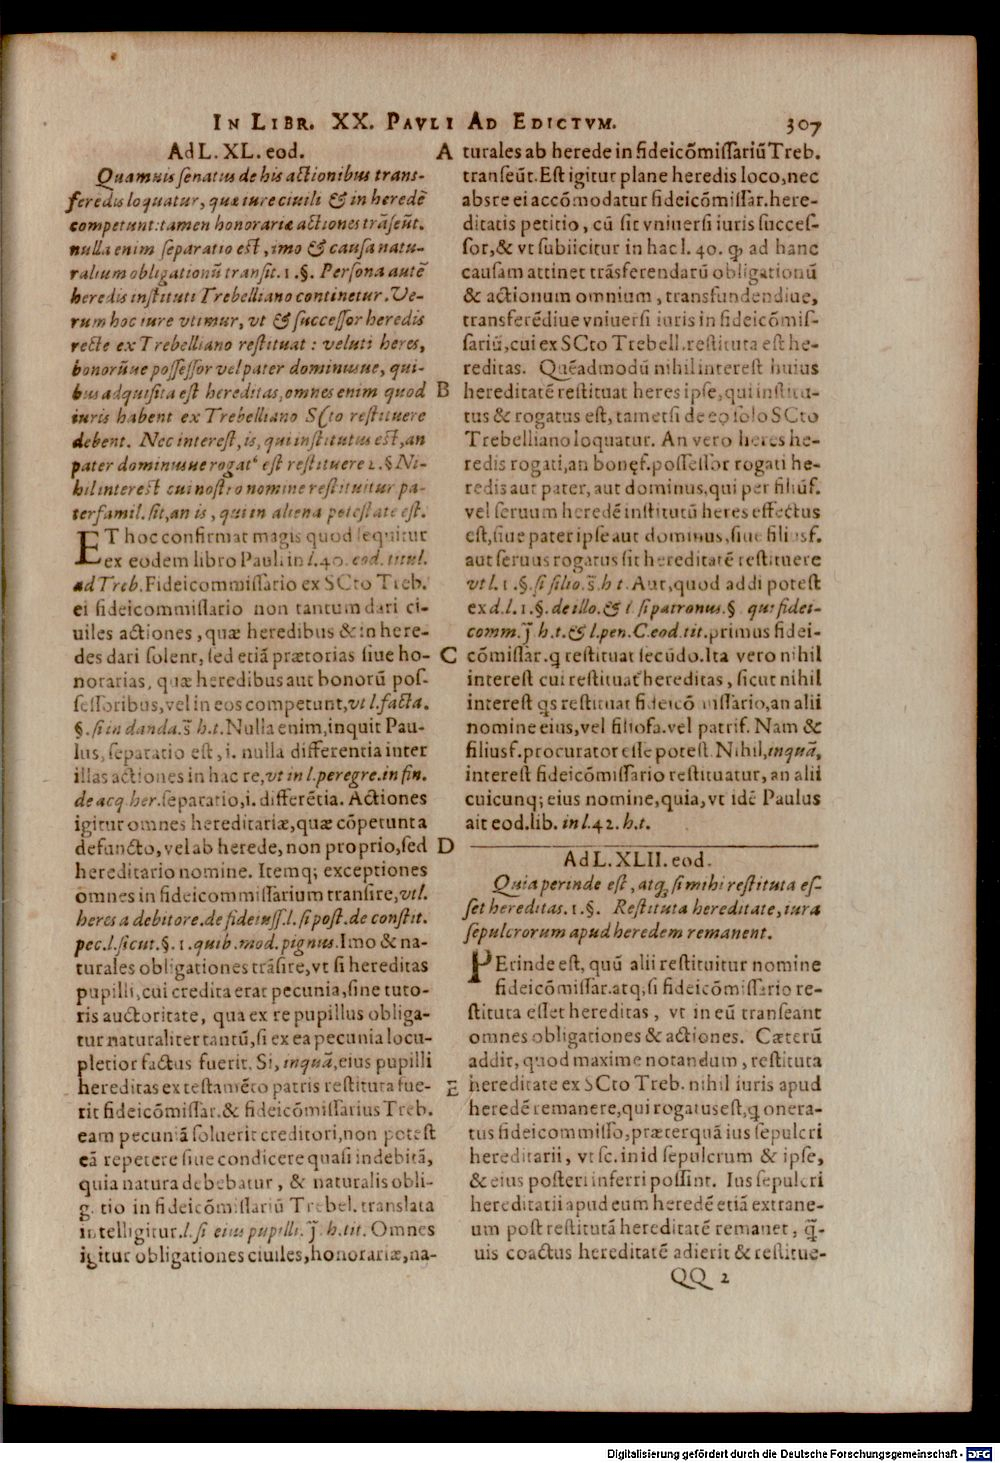 IN LIBR. XX. PAVLI AD EDICTVM. 307
Ad L. XL. eod.
Quamuis senatus de his actionibus trans-
ferēdis loquatur, quæ iure ciuili & in heredē
competunt: tamen honorariæ actiones trāseūt.
nulla enim separatio est, imo & causa natu-
ralium obligationū transit. 1.§. Persona autē
heredis instituti Trebelliano continetur. Ve-
rum hoc iure vtimur, vt & successor heredis
recte ex Trebelliano restituat: veluti heres,
bonorūue possessor vel pater dominusue, qui-
bus adquisita est hereditas, omnes enim quod
iuris habent ex Trebelliano SCto restituere
debent. Nec interest, is, qui institutus est, an
pater dominusue rogat⁹ est restituere 2.§ Ni-
hil interest cui nostro nomine restituitur pa-
terfamil. sit, an is, qui in aliena potestate est.
ET hoc confirmat magis quod sequitur
ex eodem libro Pauli in l.40. eod. titul.
ad Treb. Fideicommissario ex SCto Treb.
ei fideicommissario non tantum dari ci-
uiles actiones, quæ heredibus & in here-
des dari solent, sed etiā prætorias siue ho-
norarias, quæ heredibus aut bonorū pos-
sessoribus, vel in eos competunt, vt l. facta.
§. si in danda. s̄ h.t. Nulla enim, inquit Pau-
lus, separatio est, i. nulla differentia inter
illas actiones in hac re, vt in l. peregre. in fin.
de acq. her. separatio, i. differētia. Actiones
igitur omnes hereditariæ, quæ cōpetunta
defuncto, vel ab herede, non proprio, sed
hereditario nomine. Itemq; exceptiones
omnes in fideicommissarium transire, vt l.
heres a debitore. de fideiuss. l. si post. de constit.
pec. l. sicut. §. 1. quib. mod. pignus. Imo & na-
turales obligationes trāsire, vt si hereditas
pupilli, cui credita erat pecunia, sine tuto-
ris auctoritate, qua ex re pupillus obliga-
tur naturaliter tantū, si ex ea pecunia locu-
pletior factus fuerit. Si, inquā, eius pupilli
hereditas ex testamēto patris restituta fue-
rit fideicōmissar. & fideicōmissarius Treb.
eam pecuniā soluerit creditori, non potest
eā repetere siue condicere quasi indebitā,
quia natura debebatur, & naturalis obli-
g tio in fideicōmissariū Trebel. translata
intelligitur. l. si eius pupilli. J̄ h. tit. Omnes
igitur obligationes ciuiles, honorariæ, na-
A turales ab herede in fideicōmissariū Treb.
transeūt. Est igitur plane heredis loco, nec
absre ei accōmodatur fideicōmissar. here-
ditatis petitio, cū sit vniuersi iuris succes-
sor, & vt subiicitur in hac l. 40. ꝙ ad hanc
causam attinet trāsferendarū obligationū
& actionum omnium, transfundendiue,
transferēdiue vniuersi iuris in fideicōmis-
sariū, cui ex SCto Trebell. restituta est he-
reditas. Quēadmodū nihil interest huius
B hereditatē restituat heres ipse, qui institu-
tus & rogatus est, tametsi de eo solo SCto
Trebelliano loquatur. An vero heres he-
redis rogati, an bonęf. possessor rogati he-
redis aut pater, aut dominus, qui per filiūf.
vel seruum heredē institutū heres effectus
est, siue pater ipse aut dominus, siue filiusf.
aut seruus rogatus sit hereditatē restituere
vt l. 1.§. si filio. s̄ h t. Aut, quod addi potest
ex d. l. 1.§. de illo. & l si patronus. § qui fidei-
comm. J̄ h.t. & l. pen. C. eod. tit. primus fidei-
C cōmissar. q restituat secūdo. Ita vero nihil
interest cui restituat hereditas, sicut nihil
interest qs restituat fideicō missario, an alii
nomine eius, vel filiofa. vel patrif. Nam &
filiusf. procurator esse potest. Nihil, inquā,
interest fideicōmissario restituatur, an alii
cuicunq; eius nomine, quia, vt idē Paulus
ait eod. lib. in l. 42. h. t.
D
Ad L. XLII. eod.
Quia perinde est, atq; si mihi restituta es-
set hereditas. 1.§. Restituta hereditate, iura
sepulcrorum apud heredem remanent.
PErinde est, quū alii restituitur nomine
fideicōmissar. atq; si fideicōmissario re-
stituta esset hereditas, vt in eū transeant
omnes obligationes & actiones. Cæterū
addit, quod maxime notandum, restituta
E hereditate ex SCto Treb. nihil iuris apud
heredē remanere, qui rogatus est, q onera-
tus fideicommisso, præterquā ius sepulcri
hereditarii, vt sc. in id sepulcrum & ipse,
& eius posteri inferri possint. Ius sepulcri
hereditarii apud eum heredē etiā extrane-
um post restitutā hereditatē remanet, q̄-
uis coactus hereditatē adierit & restitue-
QQ 2
Digitalisierung gefördert durch die Deutsche Forschungsgemeinschaft - DFG